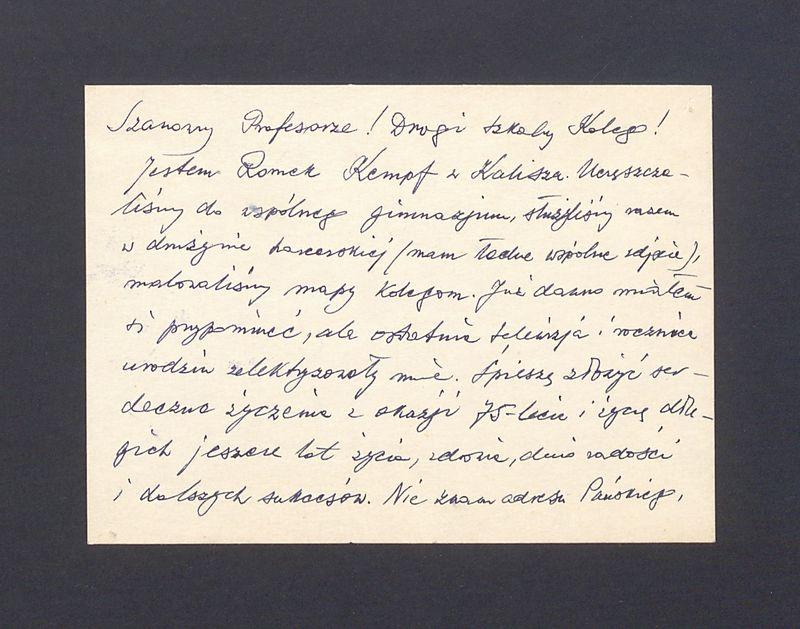 Szanowny Profesorze! Drogi szkolny Kolego!
Jestem Romek Kempf z Kalisza. Uczęszcza-
liśmy do wspólnego gimnazjum, służyliśmy razem
w drużynie harcerskiej (mam ładne wspólne zdjęcie),
malowaliśmy mapy kolegom. Już dawno miałem
się przypomnieć, ale ostatnia telewizja i rocznica
urodzin zelektryzowały mnie. Śpieszę złożyć ser-
deczne życzenia z okazji 75-lecia i życzę dłu-
gich jeszcze lat życia, zdrowia, dużo radości
i dalszych sukcesów. Nie znam adresu Pańskiego,